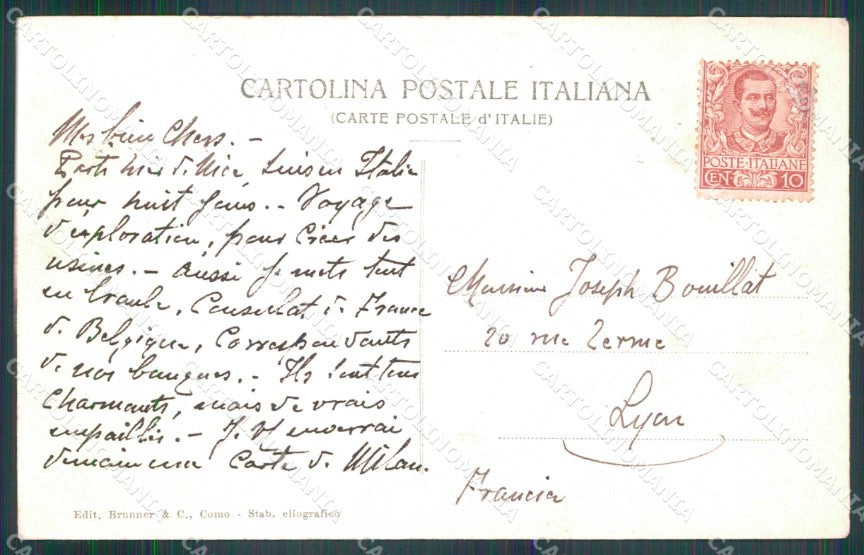 CARTOLINA POSTALE ITALIANA
(CARTE POSTALE d'ITALIE)
POSTE·ITALIANE
CEN 10
Mes bien Chers. -
Parti hier de Nice suis en Italie
pour huit jours. - Voyage
d'exploration, pour créer des
usines. - Aussi je mets tout
en branle, Consulat de France
de Belgique, Correspondants
de nos banques. - Ils sont tous
Charmants, mais de vrais
empaillés. - Je vs enverrai
demain une Carte de Milan.
Monsieur Joseph Bouillat
20 rue Terme
Lyon
Francia
Edit. Brunner & C., Como - Stab. eliografico
CARTOLINOMANIA